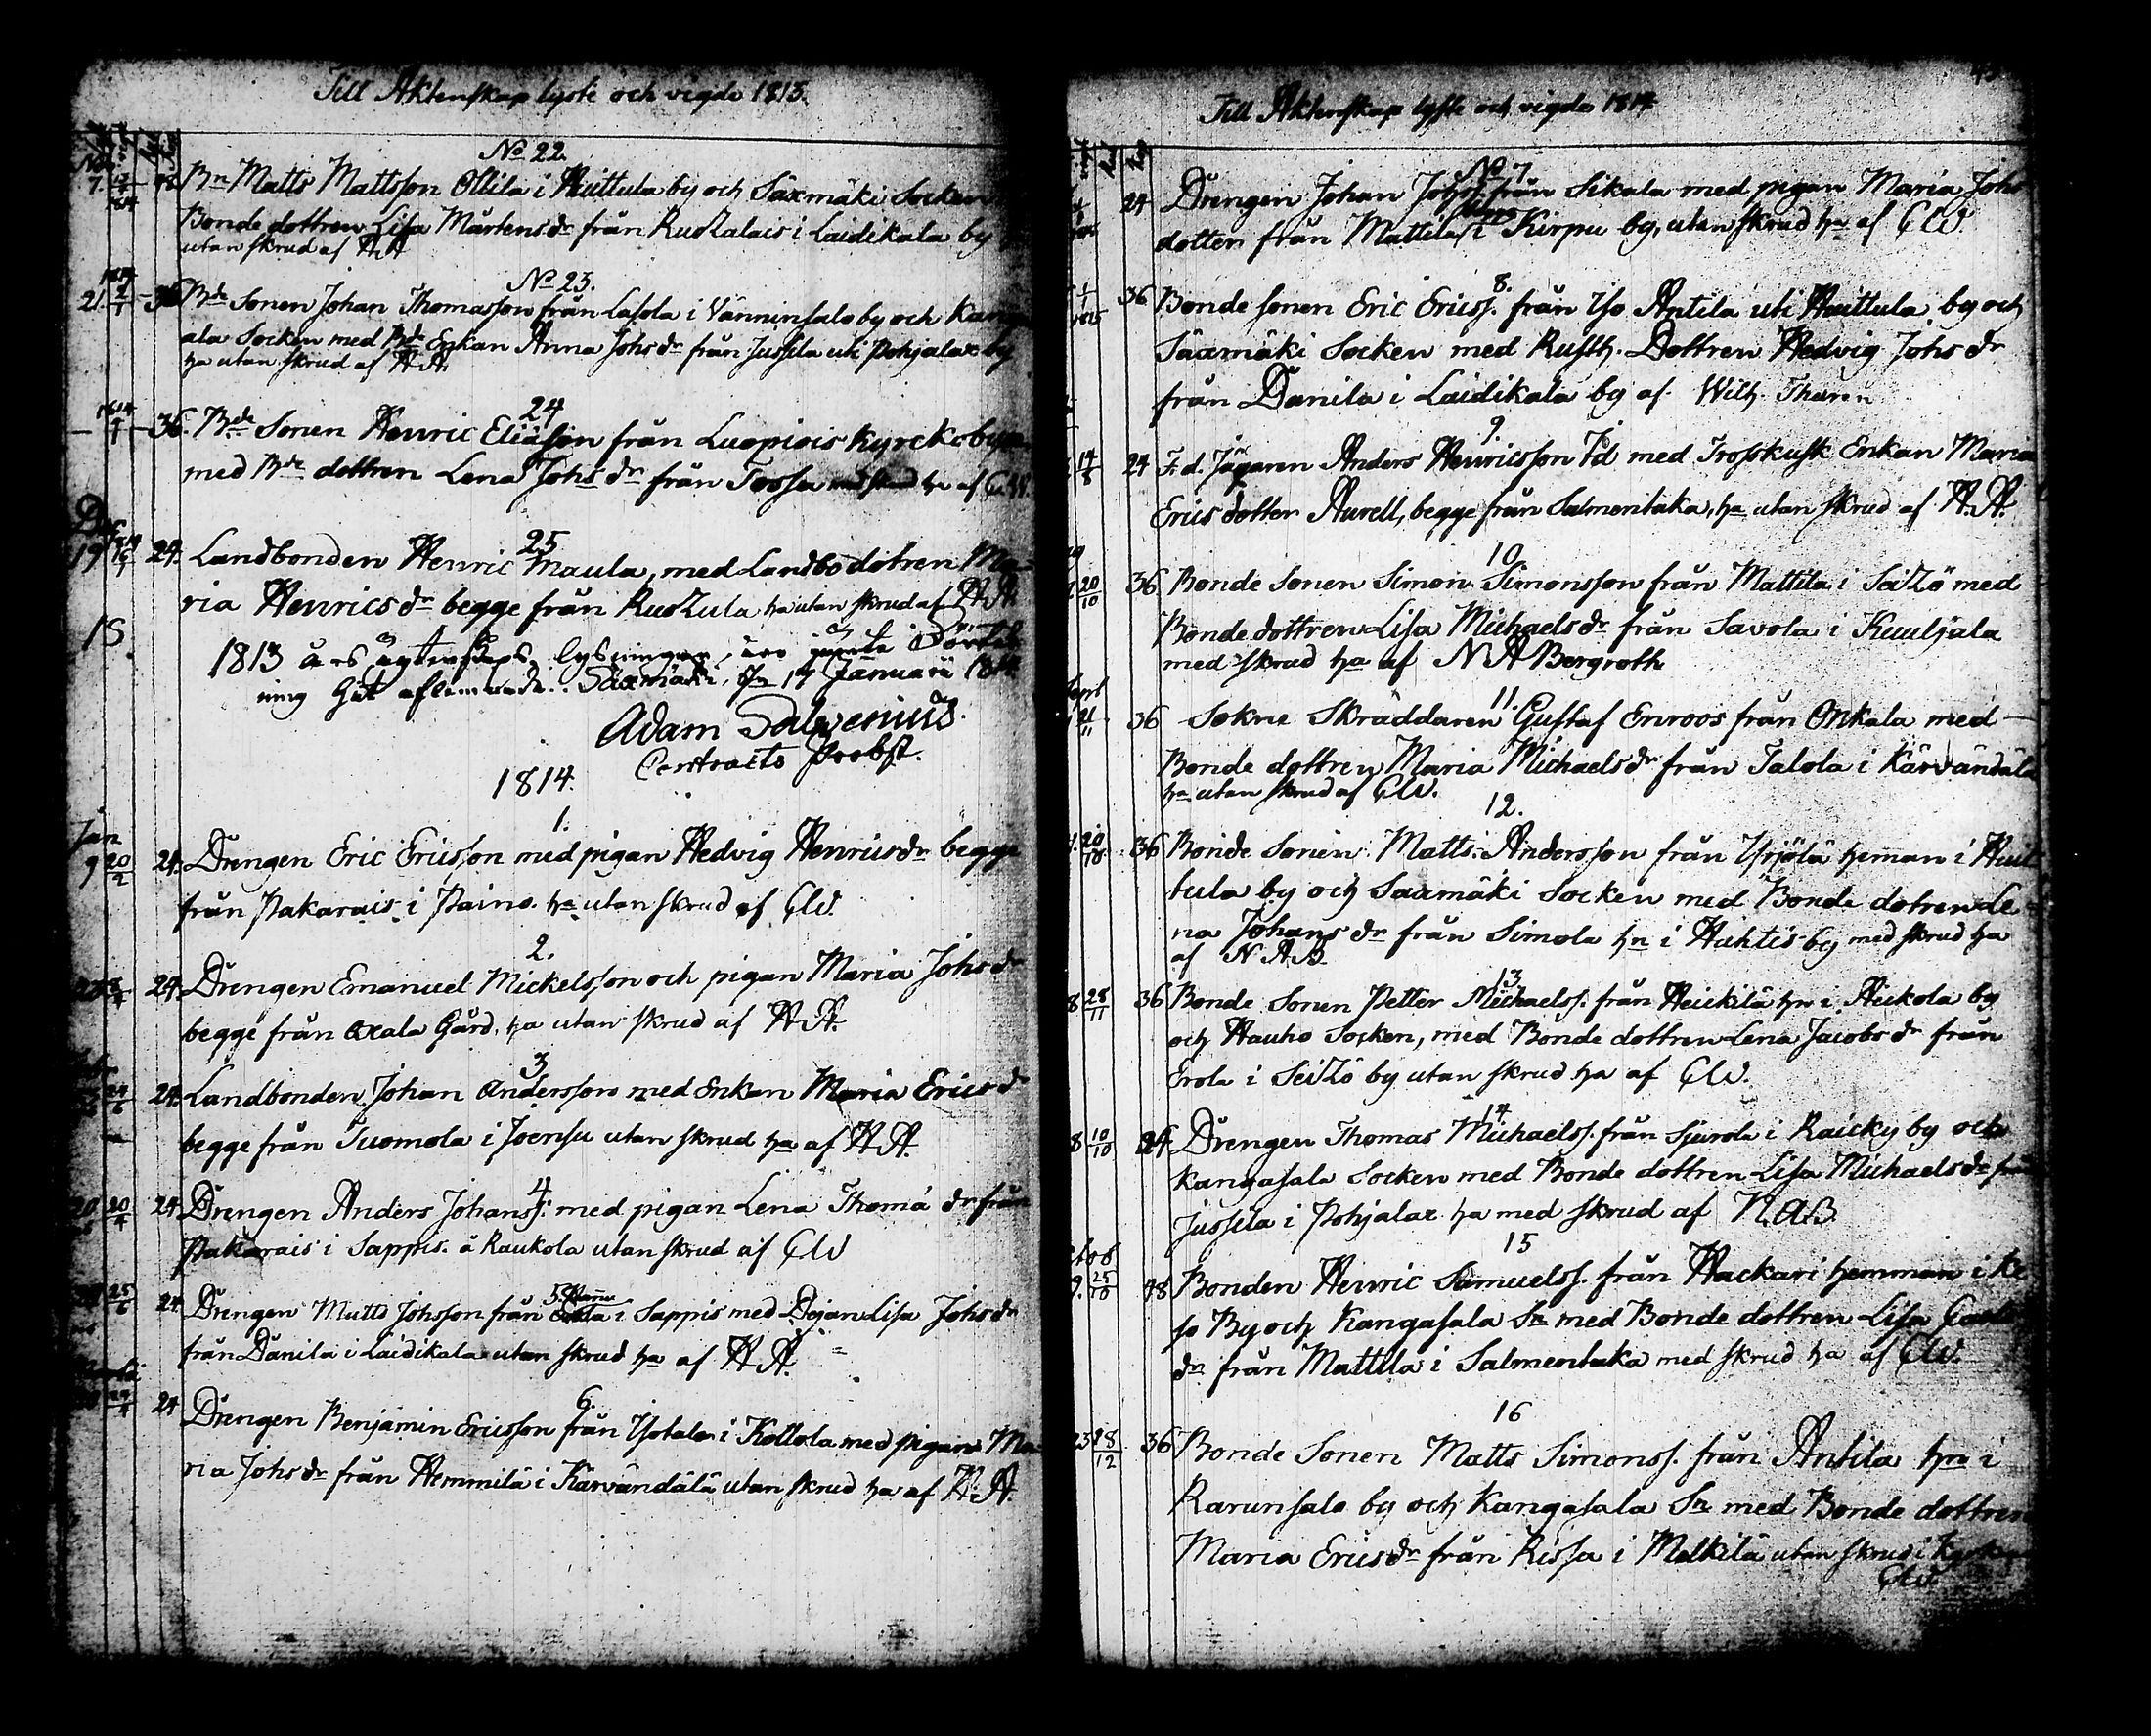 Till Äktenskap lyste och vigde 1813.
No 22.
Nov.
7. 48. Bn Matts Mattsson Ollila i Huittula by och Säxmäki Socken
Bonde dottren Lisa Mårtensdr från Ruokalais i Laidikala by
utan skrud af A A
No 23.
21. 2/1 36 Bde Sonen Johan Thomasson från Lasola i Vänninsalo by och Kang
ala Socken med Bde Enkan Anna Johsdr från Jussila uti Pohjalax by
ha utan skrud af A A.
24
1814
36. Bde Sonen Henric Eliasson från Luopiois Kyrckoby
med Bde dottren Lena Johsdr från Tossa ha af
Dec
25
19 24. Landbonden Henric Maula, med Landbodotren Ma
ria Henricsdr begge från Ruokula ha utan skrud af A A.
15
1813 års ägtenskaps lysningar, äro
ning Gat aflemnade. Säxmäki, d 17 Januarii 1814
Adam Salvenius.
Contracts Probst.
1814.
1.
Jan
9 20/2 24. Drengen Eric Ericsson med pigan Hedvig Henricsdr begge
från Pakarais i Paino. ha utan skrud af CW.
2.
24. Drengen Emanuel Mickelsson och pigan Maria Johsdr
begge från Oxala Gård, ha utan skrud af A A.
3.
24/6 24. Landbonden Johan Andersson med Enkan Maria Ericsd
begge från Tuomola i Joensu utan skrud ha af A A.
4.
20 20/4 24 Drengen Anders Johanss: med pigan Lena Thomä dr från
Pakarais i Sappis. å Raukola utan skrud af CW
5.
25/6 24 Drengen Matts Johsson från i Sappis med Pigan Lisa Johsdr
från Danila i Laidikala utan skrud ha af A A.
6.
24 Drengen Benjamin Ericsson från Ysotalo i Kottola med pigan Ma
ria Johsdr från Hemmilä i Kärvändälä utan skrud ha af A. A.
Till Äktenskap lyste och vigde 1814
No 7
24 Drengen Johan Johss från Sikala med pigan Maria Johs
dotter från Mattila i Kirpu by, utan skrud ha af CW.
8.
1/1 1815 36 Bonde sonen Eric Ericss. från Yso Antila uti Huittula by och
Säxmäki Socken med Rusth. Dottren Hedvig Johsdr
från Danila i Laidikala by af Wilh. Tharen
9.
14/8 24 F.d. Jägaren Anders Henricsson Id med Trosskusk Enkan Maria
Erics dotter Aurell, begge från Salmentaka, ha utan skrud af A. A.
10
20/10 36 Bonde Sonen Simon Simonsson från Mattila i Seikö med
Bondedottren Lisa Michaelsdr från Savola i Kuuljala
med skrud ha af N A Bergroth
11.
Sept
21/11 36 Sokne Skräddaren Gustaf Enroos från Onkala med
Bonde dottren Maria Michaelsdr från Talola i Kärvändälä
ha utan skrud af CW.
12.
20/10 36 Bonde Sonen Matts Andersson från Yrjölä heman i Huit
tula by och Saxmäki Socken med Bonde dotren Le
na Johansdr från Simola hn i Huhtis by med skrud ha
af N A B.
13
28/11 36 Bonde Sonen Petter Michaelss. från Heickilä hn i Hickola by
och Hauho Socken, med Bonde dottren Lena Jacobsdr från
Erola i Seikö by utan skrud ha af CW.
14
8 10/10 24 Drengen Thomas Michaelss. från Sjurola i Raicku by och
Kangasala Socken med Bonde dottren Lisa Michaelsdr från
Jussila i Pohjalax ha med skrud af N.A.B
15
Octob
9. 25/10 48 Bonden Henric Samuelss. från Hackari hemman i Ke
so By och Kangasala Sn med Bonde dottren Lisa Carls
dr från Mattila i Salmentaka med skrud ha af CW.
16
23 28/12 36 Bonde Sonen Matts Simonss. från Antila hn i
Rarunsalo by och Kangasala Sn med Bonde dottren
Maria Ericsdr från Rissa i Mälkilä utan skrud i Kyrkan
CW.